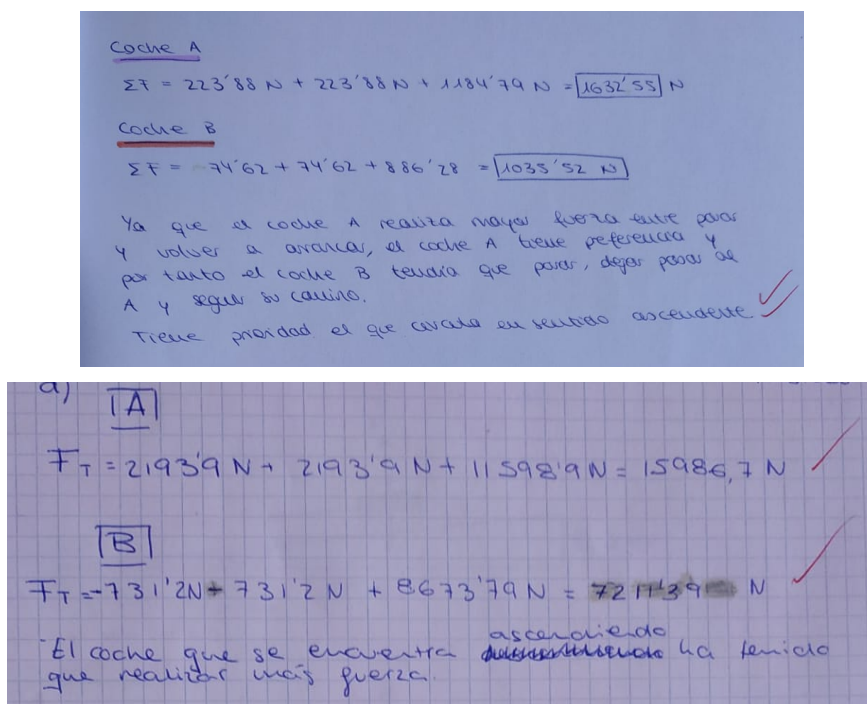 Coche A
ΣF = 223'88 N + 223'88 N + 1184'79 N = 1632'55 N
Coche B
ΣF = 74'62 + 74'62 + 886'28 = 1035'52 N
Ya que el coche A realiza mayor fuerza entre parar
y volver a arrancar, el coche A tiene peferencia y
por tanto el coche B tendría que parar, dejar pasar al
A y seguir su camino.
Tiene prioridad el que circula en sentido ascendente
a)
A
F_T = 2193'9 N + 2193'9 N + 11598'9 N = 15986,7 N
B
F_T = -731'2N - 731'2 N + 8673'79 N = 7211'39 N
ascendiendo
-El coche que se encuentra ha tenido
que realizar más fuerza.